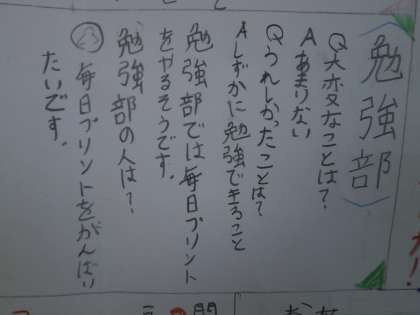 勉強部
Q大変なことは?
Aあまりない
Qうれしかったことは?
Aしずかに勉強できること
勉強部では毎日プリント
をやるそうです。
勉強部の人は?
毎日プリントをがんばり
たいです。